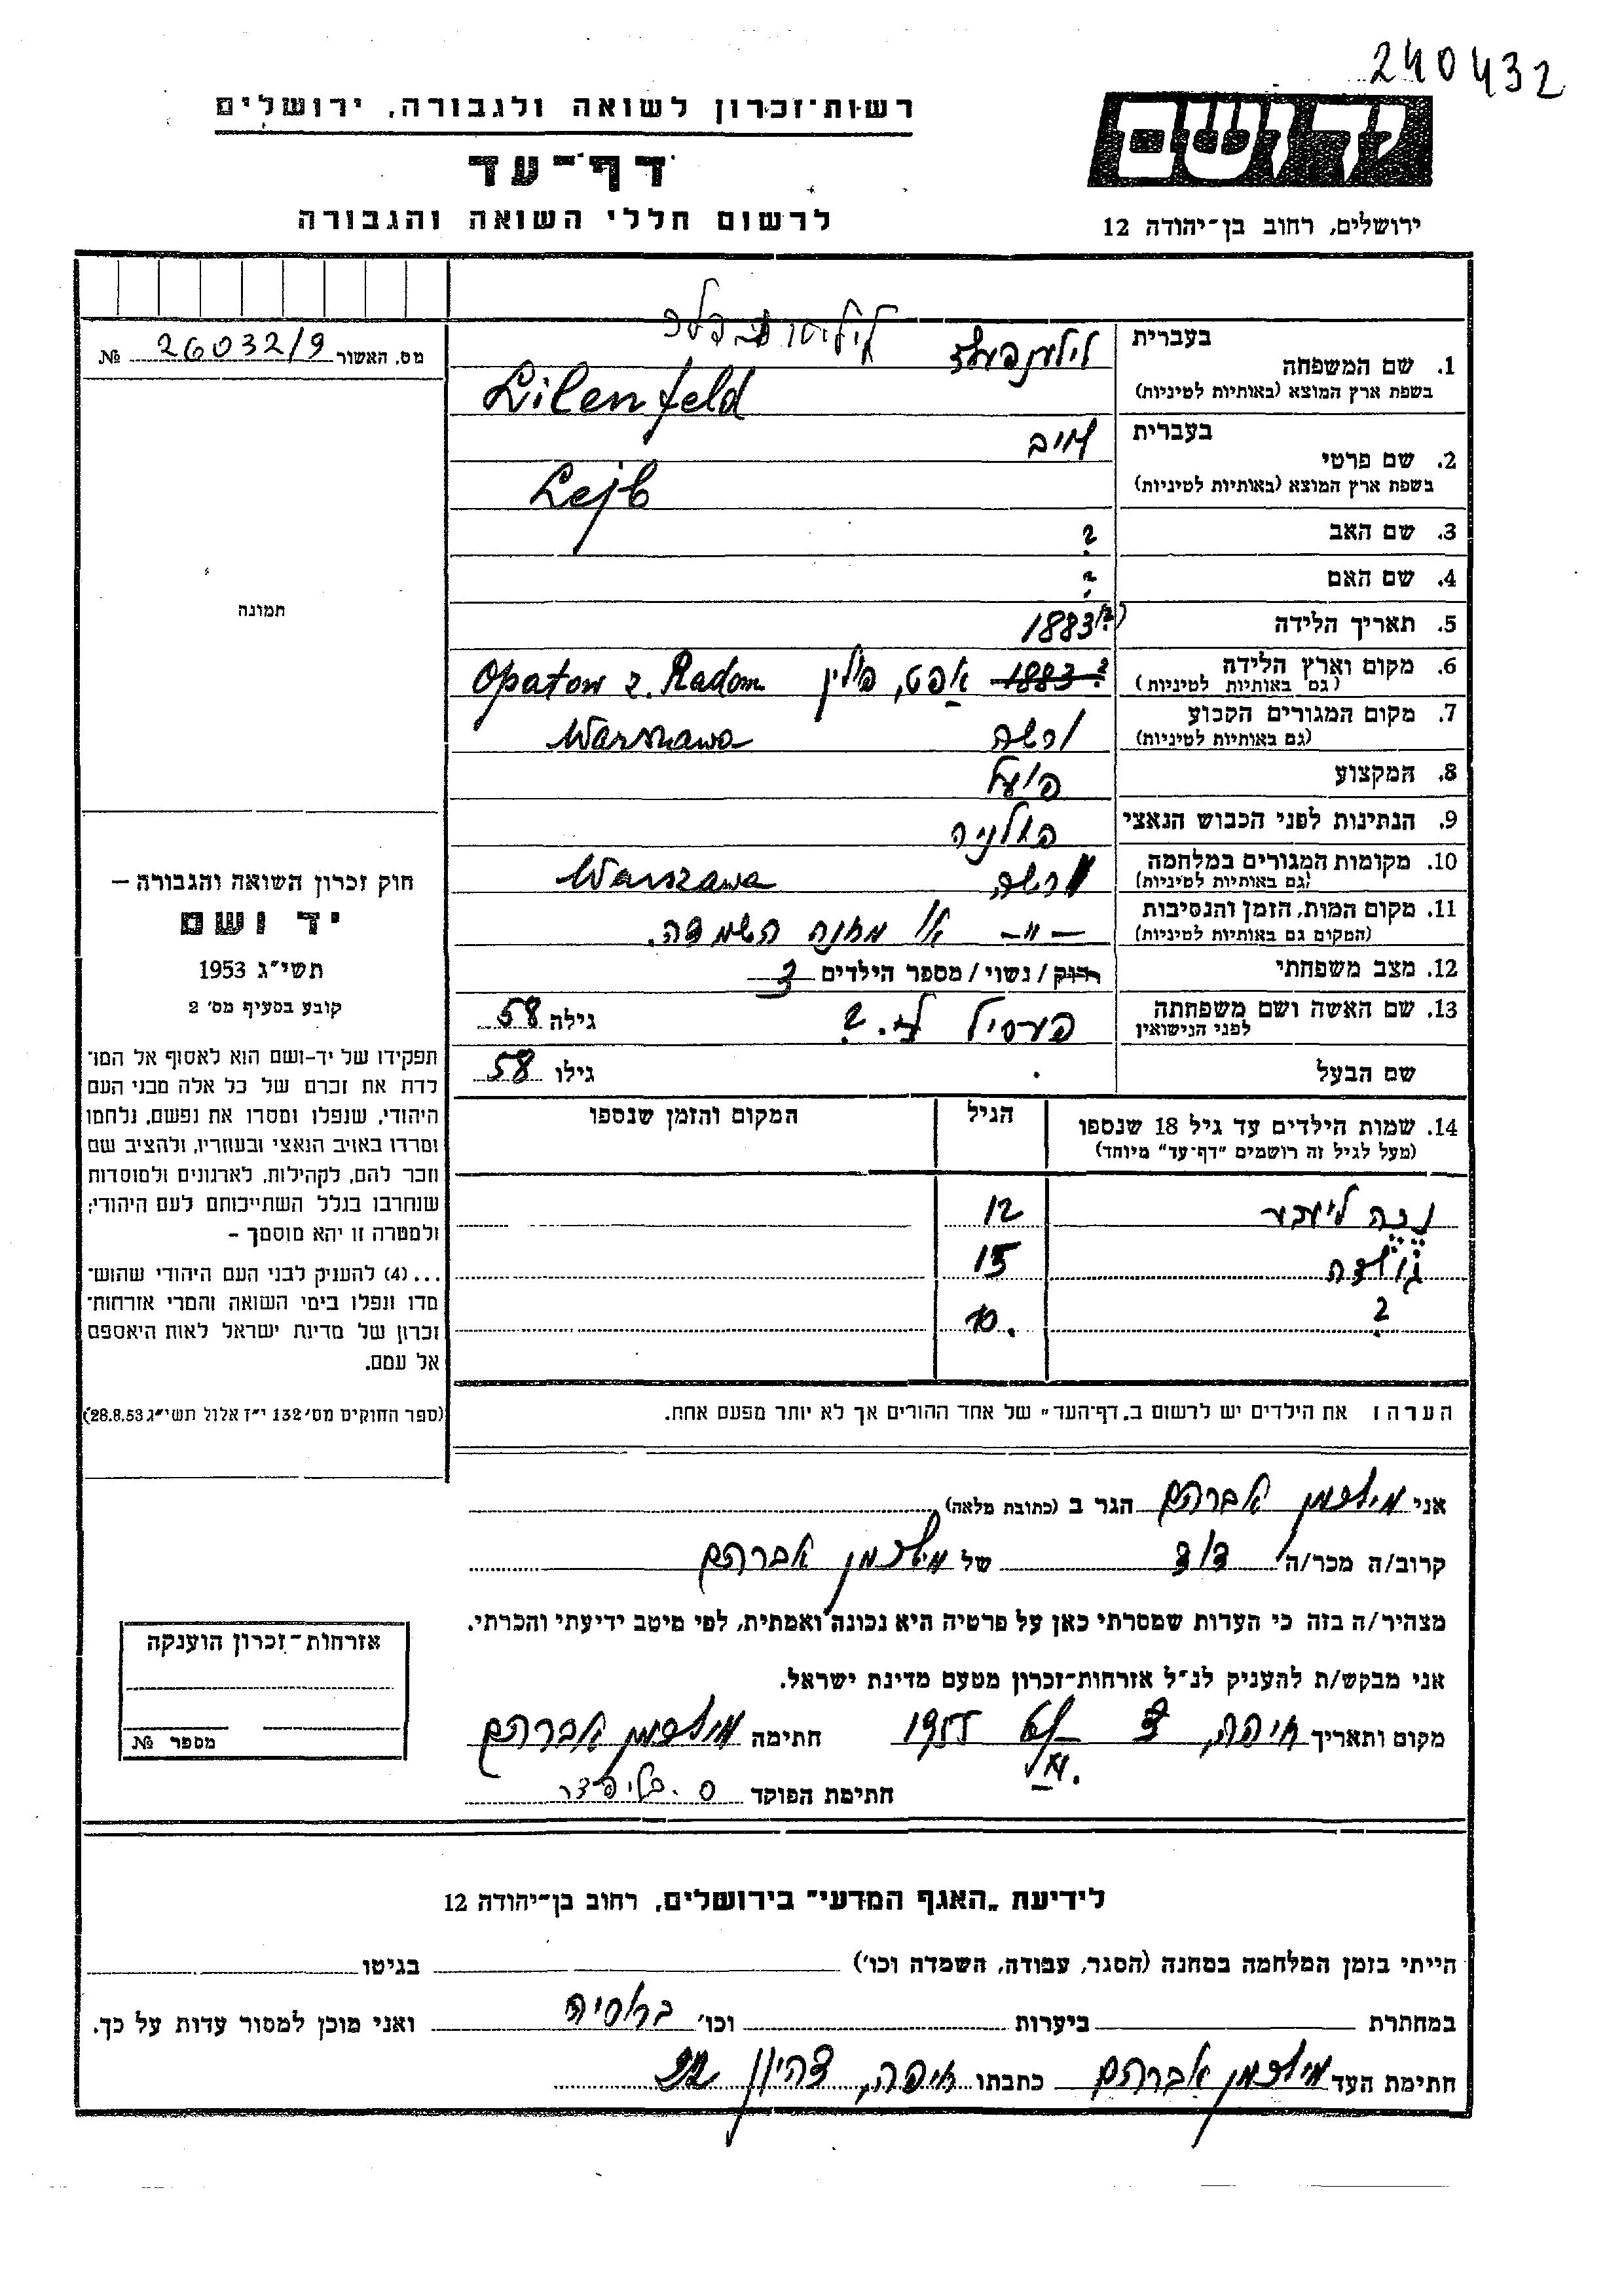 240432
רשות־זכרון לשואה ולגבורה, ירושלים
דף־עד
לרשום חללי השואה והגבורה
ידושם
ירושלים, רחוב בן־יהודה 12
מס. האשור 26032/9 №
תמונה
חוק זכרון השואה והגבורה —
יד ושם
תשי״ג 1953
קובע בסעיף מס׳ 2
תפקידו של יד־ושם הוא לאסוף אל המו־
לדת את זכרם של כל אלה מבני העם
היהודי, שנפלו ומסרו את נפשם, נלחמו
ומרדו באויב הנאצי ובעוזריו, ולהציב שם
וזכר להם, לקהילות, לארגונים ולמוסדות
שנחרבו בגלל השתייכותם לעם היהודי;
ולמטרה זו יהא מוסמך —
...(4) להעניק לבני העם היהודי שהוש־
מדו ונפלו בימי השואה והמרי אזרחות־
זכרון של מדינת ישראל לאות היאספם
אל עמם.
(ספר החוקים מס׳ 132 י״ז אלול תשי״ג 28.8.53)
1. שם המשפחה בעברית לילענפעלד
בשפת ארץ המוצא (באותיות לטיניות) Lilenfeld
2. שם פרטי בעברית לייב
בשפת ארץ המוצא (באותיות לטיניות) Lejb
3. שם האב ?
4. שם האם ?
5. תאריך הלידה 1883 (?)
6. מקום וארץ הלידה (גם באותיות לטיניות) 1883 ? אפט, פולין Opatow z. Radom
7. מקום המגורים הקבוע (גם באותיות לטיניות) ורשה Warszawa
8. המקצוע פועל
9. הנתינות לפני הכבוש הנאצי פולניה
10. מקומות המגורים במלחמה (גם באותיות לטיניות) ורשה Warszawa
11. מקום המות, הזמן והנסיבות (המקום גם באותיות לטיניות) — " — או מחנה השמדה.
12. מצב משפחתי רווק / נשוי / מספר הילדים 3
13. שם האשה ושם משפחתה לפני הנישואין פערסיל ל. ? גילה 58
שם הבעל גילו 58
14. שמות הילדים עד גיל 18 שנספו הגיל המקום והזמן שנספו
(מעל לגיל זה רושמים "דף־עד" מיוחד)
12
גולדה 15
? 10.
הערה: את הילדים יש לרשום ב„דף־העד״ של אחד ההורים אך לא יותר מפעם אחת.
אני מילצמן אברהם הגר ב (כתובת מלאה)
קרוב/ה מכר/ה דוד של מילצמן אברהם
מצהיר/ה בזה כי העדות שמסרתי כאן על פרטיה היא נכונה ואמתית, לפי מיטב ידיעתי והכרתי.
אני מבקש/ת להעניק לנ״ל אזרחות־זכרון מטעם מדינת ישראל.
מקום ותאריך חיפה, 1955 חתימה מילצמן אברהם
חתימת הפוקד
אזרחות־זכרון הוענקה
מספר №
לידיעת „האגף המדעי״ בירושלים, רחוב בן־יהודה 12
הייתי בזמן המלחמה במחנה (הסגר, עבודה, השמדה וכו׳) בגיטו
במחתרת ביערות וכו׳ ברוסיה ואני מוכן למסור עדות על כך.
חתימת העד מילצמן אברהם כתבתו חיפה, 22